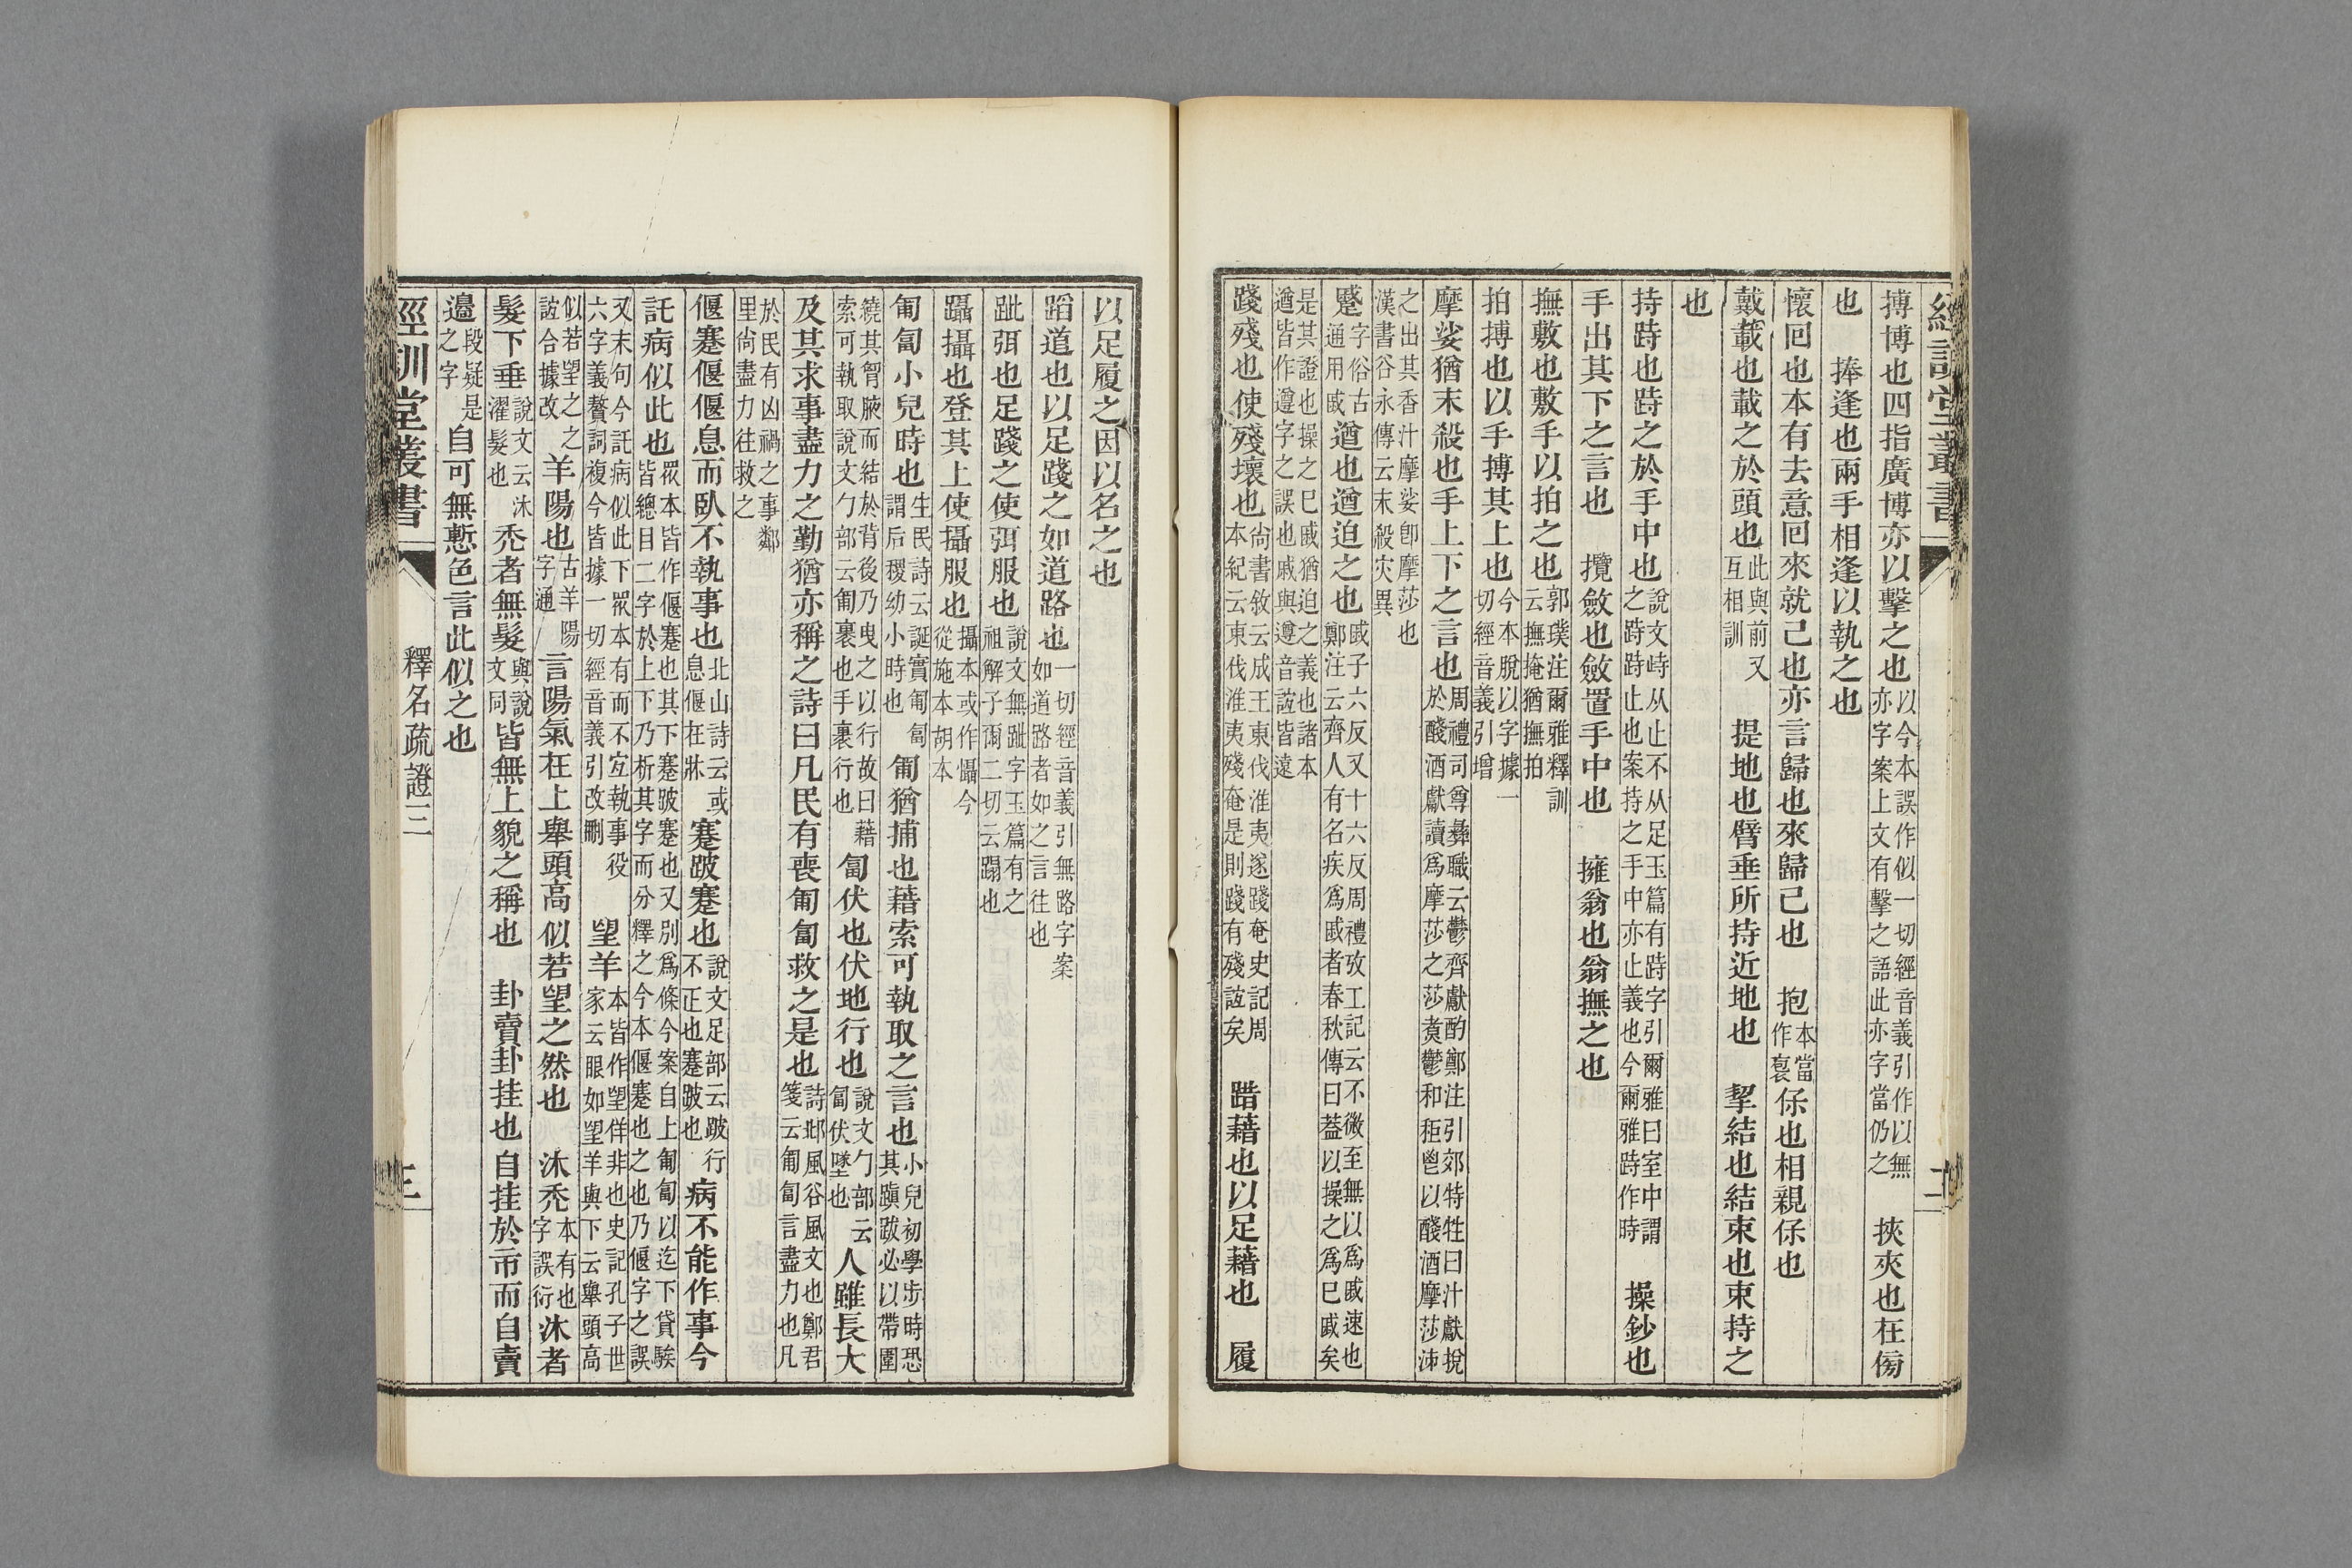 經訓堂叢書
搏博也四指廣博亦以擊之也以今本誤作似一切經音義引作以無亦字案上文有擊之語此亦字當仍之 挾夾也在㑂
也 捧逢也兩手相逢以執之也
懷回也本有去意回來就己也亦言歸也來歸己也 抱本當作裦保也相親保也
戴載也載之於頭也此與前又互相訓 提地也臂垂所持近地也 挈結也結束也束持之
也
持跱也跱之於手中也說文峙从止不从足玉篇有跱字引爾雅曰室中謂之跱跱止也案持之手中亦止義也今爾雅跱作時 操鈔也
手出其下之言也 攬斂也斂置手中也 擁翁也翁撫之也
撫敷也敷手以拍之也郭璞注爾雅釋訓云撫掩猶撫拍
拍搏也以手搏其上也今本脫以字據一切經音義引增
摩娑猶末殺也手上下之言也周禮司尊彝職云鬱齊獻酌鄭注引郊特牲曰汁獻捝於醆酒獻讀爲摩莎之莎煑鬱和秬鬯以醆酒摩莎沛
之出其香汁摩娑卽摩莎也漢書谷永傳云末殺灾異
蹙字俗古通用戚遒也遒迫之也戚子六反又十六反周禮攷工記云不微至無以爲戚速也鄭注云齊人有名疾爲戚者春秋傳曰葢以操之爲已戚矣
是其證也操之已戚猶迫之義也諸本遒皆作遵字之誤也戚與遵音誼皆遠
踐殘也使殘壞也尙書敘云成王東伐淮夷遂踐奄史記周本紀云東伐淮夷殘奄是則踐有殘誼矣 踖藉也以足藉也 履
以足履之因以名之也
蹈道也以足踐之如道路也一切經音義引無路字案如道路者如之言往也
跐弭也足踐之使弭服也說文無跐字玉篇有之祖解子爾二切云蹋也
躡攝也登其上使攝服也攝本或作懾今從施本胡本
匍匐小兒時也生民詩云誕實匍匐謂后稷幼小時也 匍猶捕也藉索可執取之言也小兒初學步時恐其蹎跋必以帶圍
繞其胷腋而結於背後乃曳之以行故曰藉索可執取說文勹部云匍裹也手裹行也 匐伏也伏地行也說文勹部云匐伏墬也 人雖長大
及其求事盡力之勤猶亦稱之詩曰凡民有喪匍匐救之是也詩邶風谷風文也鄭君箋云匍匐言盡力也凡
於民有凶禍之事鄰里尙盡力往救之
偃蹇偃偃息而臥不執事也北山詩云或息偃在牀 蹇跛蹇也說文足部云跛行不正也蹇跛也 病不能作事今
託病似此也眾本皆作偃蹇也其下蹇跛蹇也又別爲條今案自上匍匐以迄下貸騃皆總目二字於上下乃析其字而分釋之今本偃蹇也之也乃偃字之誤
又末句今託病似此下眾本有而不宐執事役六字義贅詞複今皆據一切經音義引改刪 望羊本皆作望佯非也史記孔子世家云眼如望羊與下云舉頭高
似若望之之誼合據改 羊陽也古羊陽字通 言陽氣在上舉頭高似若望之然也 沐禿本有也字誤衍沐者
髮下垂說文云沐濯髮也 禿者無髮與說文同皆無上貌之稱也 卦賣卦挂也自挂於帀而自賣
邉段疑是之字自可無慙色言此似之也
經訓堂叢書 釋名疏證三 三